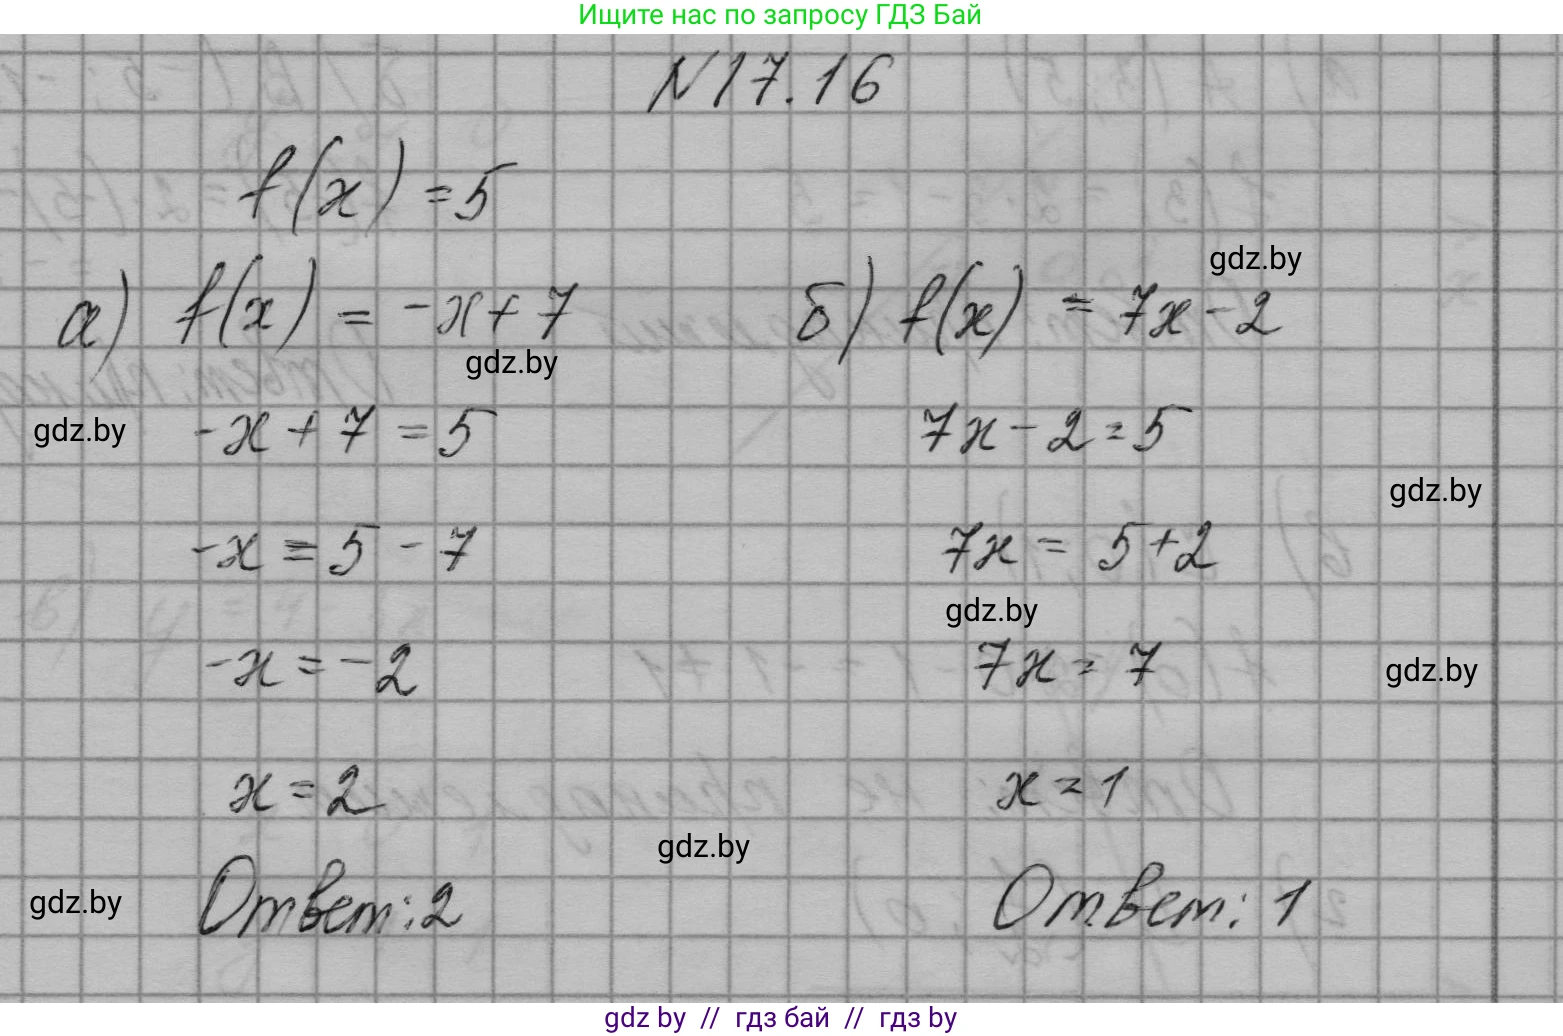 Ищите нас по запросу ГДЗ Бай
N17.16
f(x) = 5
gdz.by
а) f(x) = -x + 7
б) f(x) = 7x - 2
gdz.by
gdz.by
-x + 7 = 5
7x - 2 = 5
gdz.by
-x = 5 - 7
7x = 5 + 2
gdz.by
-x = -2
7x = 7
gdz.by
x = 2
x = 1
gdz.by
gdz.by
Ответ: 2
Ответ: 1
gdz by // гдз бай // гдз by